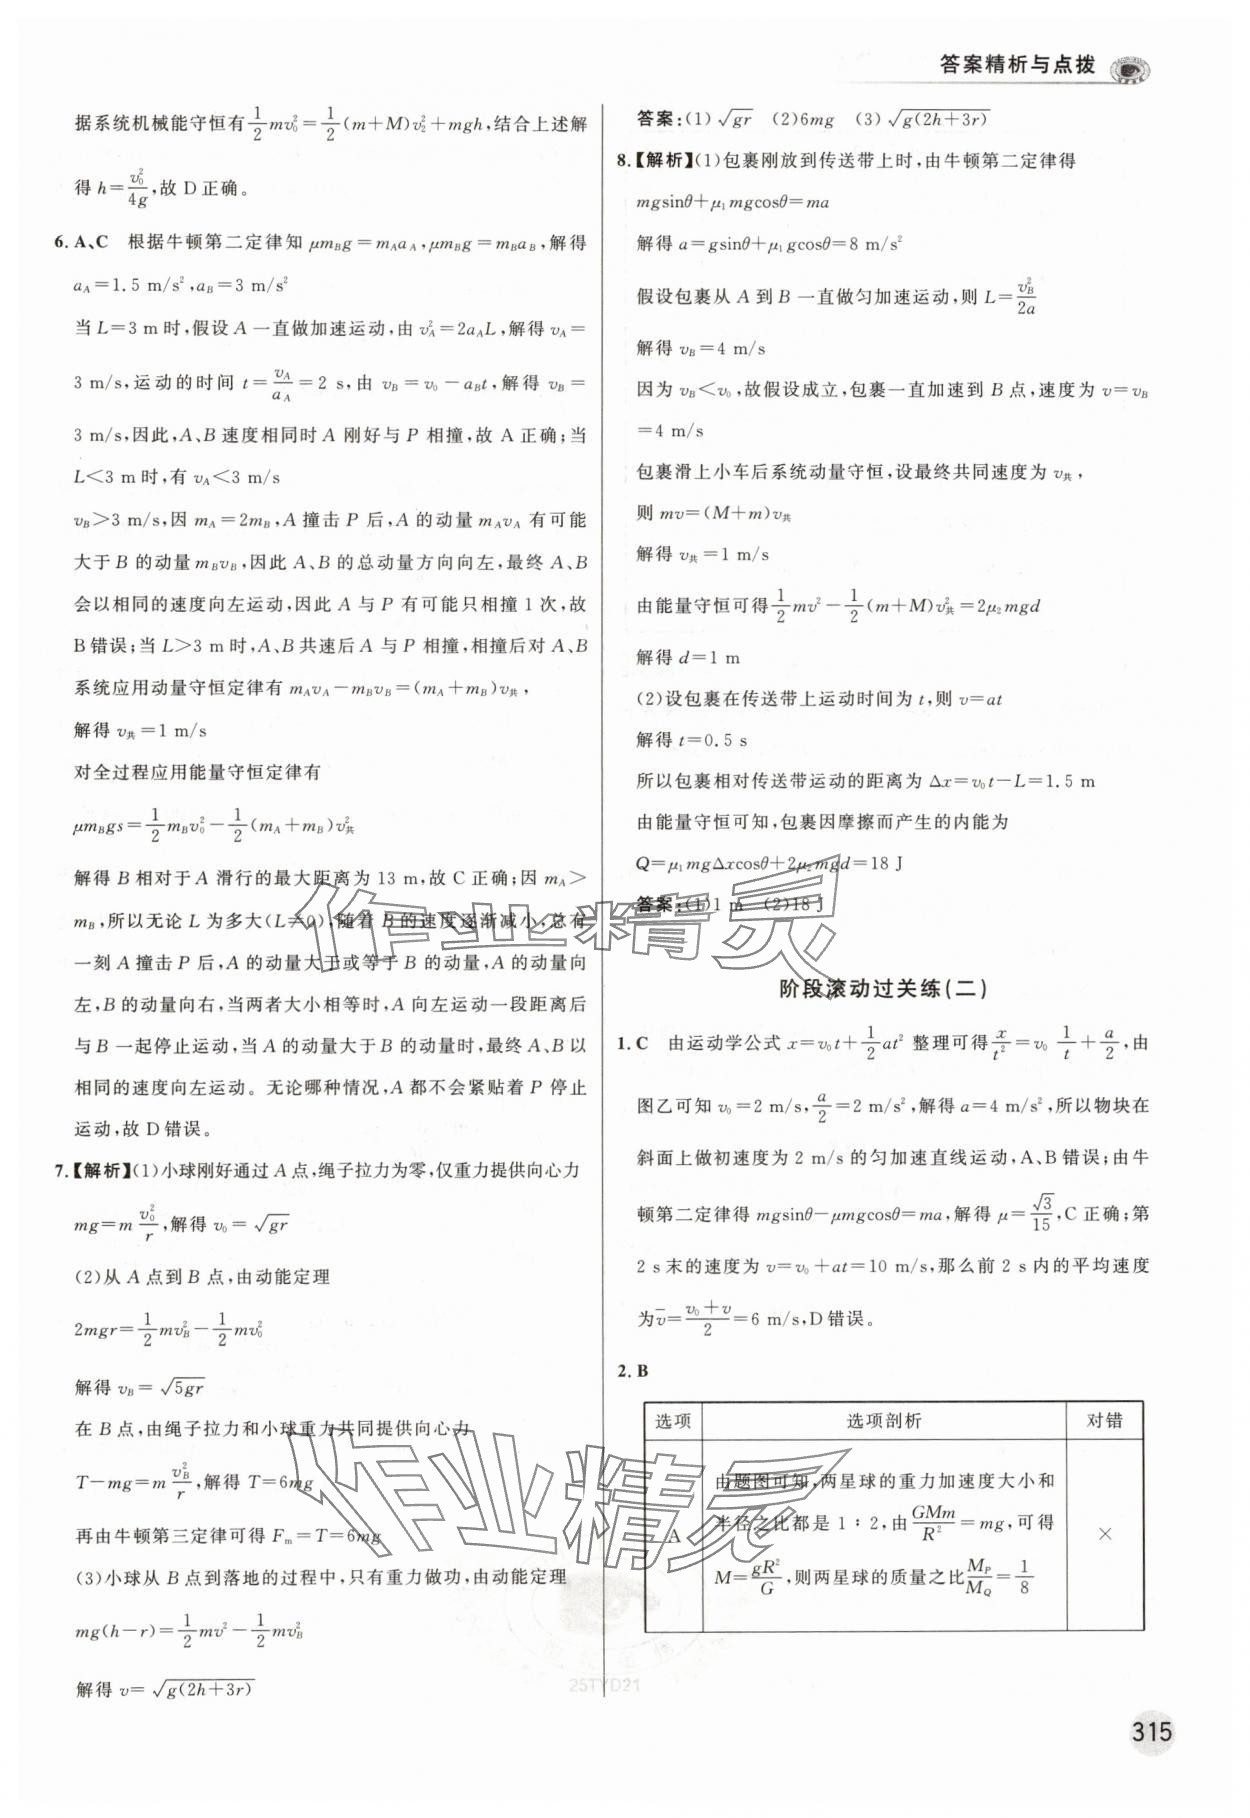 答案精析与点拨
据系统机械能守恒有$\frac{1}{2}mv_0^2=\frac{1}{2}(m+M)v_2^2+mgh$,结合上述解
得$h=\frac{v_0^2}{4g}$,故 D 正确。
6. A、C 根据牛顿第二定律知 $\mu m_Bg=m_Aa_A,\mu m_Bg=m_Ba_B$,解得
$a_A=1.5\ m/s^2,a_B=3\ m/s^2$
当 L=3 m 时,假设 A 一直做加速运动,由 $v_A^2=2a_AL$,解得 $v_A=$
3 m/s,运动的时间 $t=\frac{v_A}{a_A}=2\ s$,由 $v_B=v_0-a_Bt$,解得 $v_B=$
3 m/s,因此,A、B 速度相同时 A 刚好与 P 相撞,故 A 正确;当
L<3 m 时,有 $v_A<3\ m/s$
$v_B>3\ m/s$,因 $m_A=2m_B$,A 撞击 P 后,A 的动量 $m_Av_A$ 有可能
大于 B 的动量 $m_Bv_B$,因此 A、B 的总动量方向向左,最终 A、B
会以相同的速度向左运动,因此 A 与 P 有可能只相撞 1 次,故
B 错误;当 L>3 m 时,A、B 共速后 A 与 P 相撞,相撞后对 A、B
系统应用动量守恒定律有 $m_Av_A-m_Bv_B=(m_A+m_B)v_共$,
解得 $v_共=1\ m/s$
对全过程应用能量守恒定律有
$\mu m_Bgs=\frac{1}{2}m_Bv_0^2-\frac{1}{2}(m_A+m_B)v_共^2$
解得 B 相对于 A 滑行的最大距离为 13 m,故 C 正确;因 $m_A>$
$m_B$,所以无论 L 为多大(L≠0),随着 B 的速度逐渐减小,总有
一刻 A 撞击 P 后,A 的动量大于或等于 B 的动量,A 的动量向
左,B 的动量向右,当两者大小相等时,A 向左运动一段距离后
与 B 一起停止运动,当 A 的动量大于 B 的动量时,最终 A、B 以
相同的速度向左运动。无论哪种情况,A 都不会紧贴着 P 停止
运动,故 D 错误。
7.【解析】(1)小球刚好通过 A 点,绳子拉力为零,仅重力提供向心力
$mg=m\frac{v_0^2}{r}$,解得 $v_0=\sqrt{gr}$
(2)从 A 点到 B 点,由动能定理
$2mgr=\frac{1}{2}mv_B^2-\frac{1}{2}mv_0^2$
解得 $v_B=\sqrt{5gr}$
在 B 点,由绳子拉力和小球重力共同提供向心力
$T-mg=m\frac{v_B^2}{r}$,解得 T=6mg
再由牛顿第三定律可得 $F_m=T=6mg$
(3)小球从 B 点到落地的过程中,只有重力做功,由动能定理
$mg(h-r)=\frac{1}{2}mv^2-\frac{1}{2}mv_B^2$
解得 $v=\sqrt{g(2h+3r)}$
答案:(1)$\sqrt{gr}$ (2)6mg (3)$\sqrt{g(2h+3r)}$
8.【解析】(1)包裹刚放到传送带上时,由牛顿第二定律得
$mg\sin\theta+\mu_1mg\cos\theta=ma$
解得 $a=g\sin\theta+\mu_1g\cos\theta=8\ m/s^2$
假设包裹从 A 到 B 一直做匀加速运动,则 $L=\frac{v_B^2}{2a}$
解得 $v_B=4\ m/s$
因为 $v_B<v_0$,故假设成立,包裹一直加速到 B 点,速度为 $v=v_B$
=4 m/s
包裹滑上小车后系统动量守恒,设最终共同速度为 $v_共$,
则 $mv=(M+m)v_共$
解得 $v_共=1\ m/s$
由能量守恒可得$\frac{1}{2}mv^2-\frac{1}{2}(m+M)v_共^2=2\mu_2mgd$
解得 d=1 m
(2)设包裹在传送带上运动时间为 t,则 v=at
解得 t=0.5 s
所以包裹相对传送带运动的距离为 $\Delta x=v_0t-L=1.5\ m$
由能量守恒可知,包裹因摩擦而产生的内能为
$Q=\mu_1mg\Delta x\cos\theta+2\mu_2mgd=18\ J$
答案:(1)1 m (2)18 J
阶段滚动过关练(二)
1. C 由运动学公式 $x=v_0t+\frac{1}{2}at^2$ 整理可得$\frac{x}{t^2}=v_0\frac{1}{t}+\frac{a}{2}$,由
图乙可知 $v_0=2\ m/s,\frac{a}{2}=2\ m/s^2$,解得 $a=4\ m/s^2$,所以物块在
斜面上做初速度为 2 m/s 的匀加速直线运动,A、B 错误;由牛
顿第二定律得 $mg\sin\theta-\mu mg\cos\theta=ma$,解得 $\mu=\frac{\sqrt{3}}{15}$,C 正确;第
2 s 末的速度为 $v=v_0+at=10\ m/s$,那么前 2 s 内的平均速度
为$\bar{v}=\frac{v_0+v}{2}=6\ m/s$,D 错误。
2. B
选项 选项剖析 对错
由题图可知,两星球的重力加速度大小和
A 半径之比都是 1∶2,由$\frac{GMm}{R^2}=mg$,可得 ×
$M=\frac{gR^2}{G}$,则两星球的质量之比$\frac{M_P}{M_Q}=\frac{1}{8}$
作业精灵
作业精灵
25TYD21
315